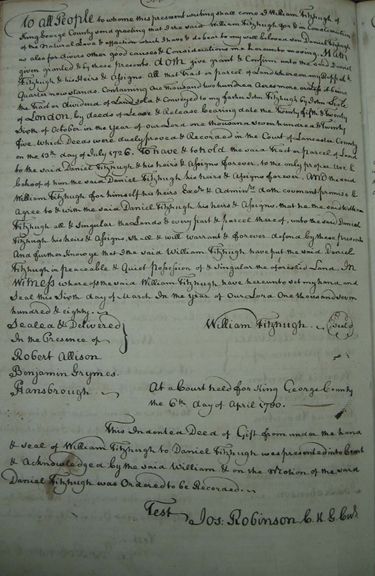 To all People to whome this present writing shall come I William Fitzhugh of
King George County send greeting that I the said William Fitzhugh for & in Consideration
of the Natural Love & affection which I have & do bear to my well beloved son Daniel Fitzhugh
as also for divers other good causes & Considerations me hereunto moving Hath
given granted & by these presents doth give grant & Confirm unto the said Daniel
Fitzhugh & to his Heirs & Assigns all that Tract or parcel of Land whereon my
Quarter now stands. Containing one thousand two hundred Acres more or less it being
the Tract or dividend of Land sold & Conveyed to my father John Fitzhugh by John
of London, by deeds of Lease & Release bearing date the twenty fifth & twenty
sixth of October in the year of our Lord one thousand seven hundred & twenty
five. Which Deeds were duely proved & Recorded in the Court of Lancaster County
on the 13th day of July 1726. To have & to Hold the said Tract or parcel of Land
to the said Daniel Fitzhugh & his heirs & Assigns forever, to the only proper use &
behoof of him the said Daniel Fitzhugh his heirs & Assigns forever. And the said
William Fitzhugh for himself his heirs Exors & Admrs doth covenant promise &
Agree to & with the said Daniel Fitzhugh his heirs & Assigns, that he the said William
Fitzhugh all & Singular the Lands & every part & parcel thereof, unto the said Daniel
Fitzhugh his heirs & Assigns, shall & will warrant & forever defend by these presents
And further know ye that I the said William Fitzhugh have put the said Daniel
Fitzhugh in peaceable & Quiet Possession of & Singular the aforesaid Land. In
Witness whereof the said William Fitzhugh have hereunto set my hand and
Seal this Sixth day of March In the Year of Our Lord One thousand seven
hundred & eighty.
Sealed & Delivered William Fitzhugh Seal
In the Presence of
Robert Allison
Benjamin Grymes
Hansbrough At a Court held for King George County
the 6th day of April 1780.
This Indented Deed of Gift from under the hand
& seal of William Fitzhugh to Daniel Fitzhugh was presented into Court
& Acknowledged by the said William & on the Motion of the said
Daniel Fitzhugh was Ordered to be Recorded.
Test
Jos. Robinson C. K. G. Cty